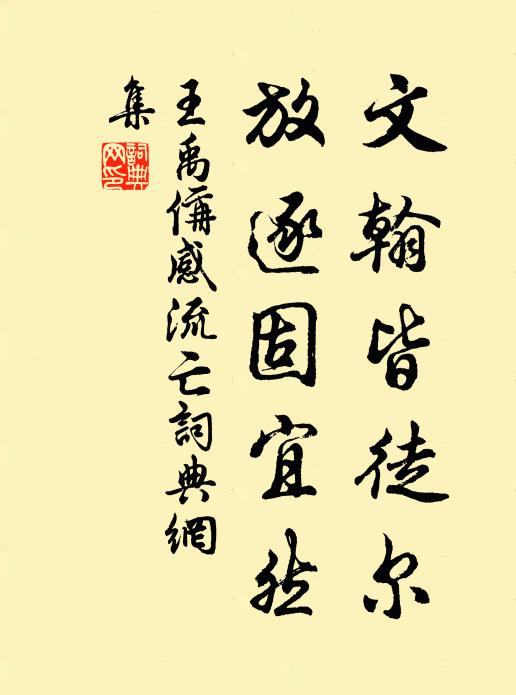 文翰皆徒尔
放逐固宜然
王禹偁感流亡詞典網
集
詞典
网印